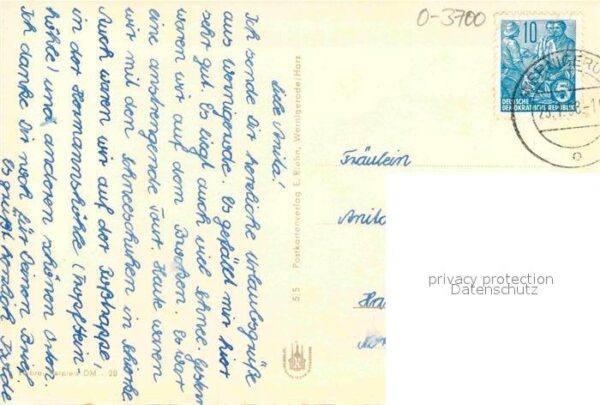 Liebe Anita!
Ich sende Dir herzliche Urlaubsgrüße
aus Wernigerode. Es gefällt mir hier
sehr gut. Es liegt auch viel Schnee. Gestern
waren wir auf dem Brocken. Es war
eine anstrengende Tour. Heute waren
wir mit den Schneeschuhen in Schierke.
Auch waren wir auf der Roßtrappe,
in der Hermannshöhle (Tropfstein-
höhle) und anderen schönen Orten.
Ich danke Dir noch für Deinen Brief.
Es grüßt herzlich
5/5 Postkartenverlag E. Riehn, Wernigerode/Harz
DM -.20
O-3700
10
5
DEUTSCHE
DEMOKRATISCHE REPUBLIK
WERNIGERO
Fräulein
privacy protection
Datenschutz